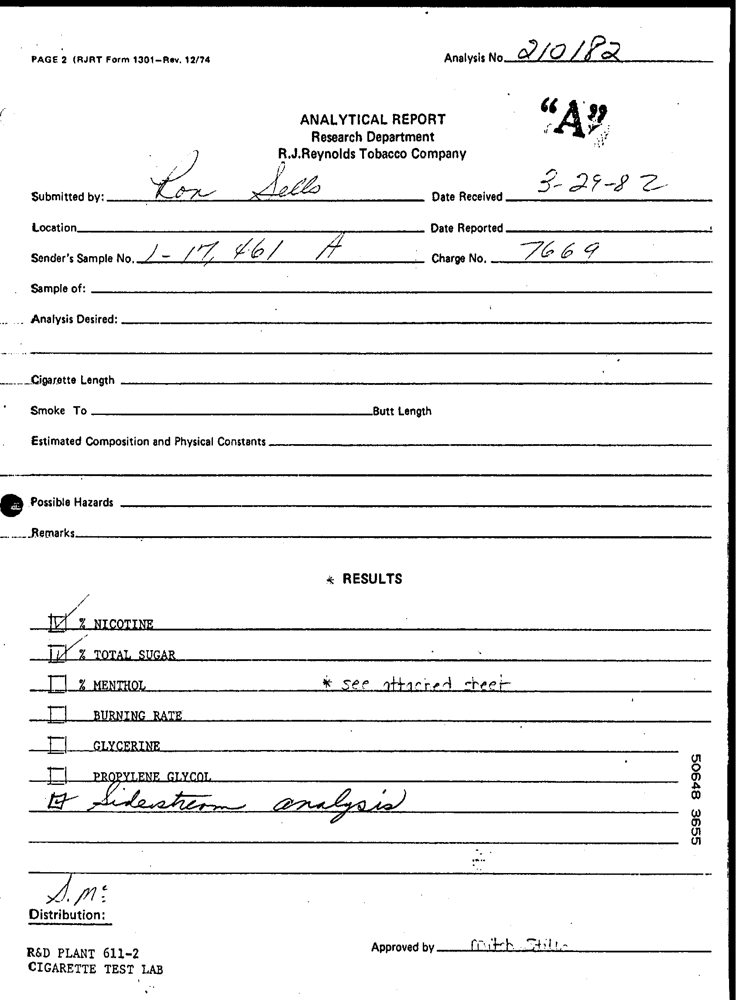 PAGE 2 (RJRT Form 1301—Rev. 12/74
Analysis No. 210182
"A"
ANALYTICAL REPORT
Research Department
R.J.Reynolds Tobacco Company
Submitted by: Ron Sells Date Received 3-29-82
Location Date Reported
Sender's Sample No. 1-17, 461 A Charge No. 7669
Sample of:
Analysis Desired:
Cigarette Length
Smoke To Butt Length
Estimated Composition and Physical Constants
Possible Hazards
Remarks
* RESULTS
% NICOTINE
% TOTAL SUGAR
% MENTHOL * see attached sheet
BURNING RATE
GLYCERINE
PROPYLENE GLYCOL
Sidestream analysis
50648 3655
Distribution:
R&D PLANT 611-2
CIGARETTE TEST LAB
Approved by Mitch